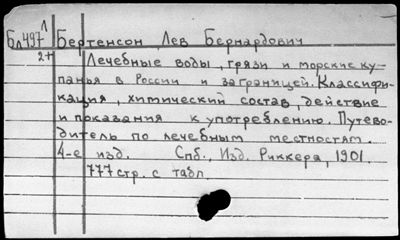 Бл497 л Бертенсон Лев Бернардович
2н Лечебные воды, грязи и морские ку-
панья в России и заграницей. Классифи-
кация, химический состав, действие
и показания к употреблению. Путево-
дитель по лечебным местностям.
4-е изд. Спб., Изд. Риккера, 1901.
777 стр. с табл.